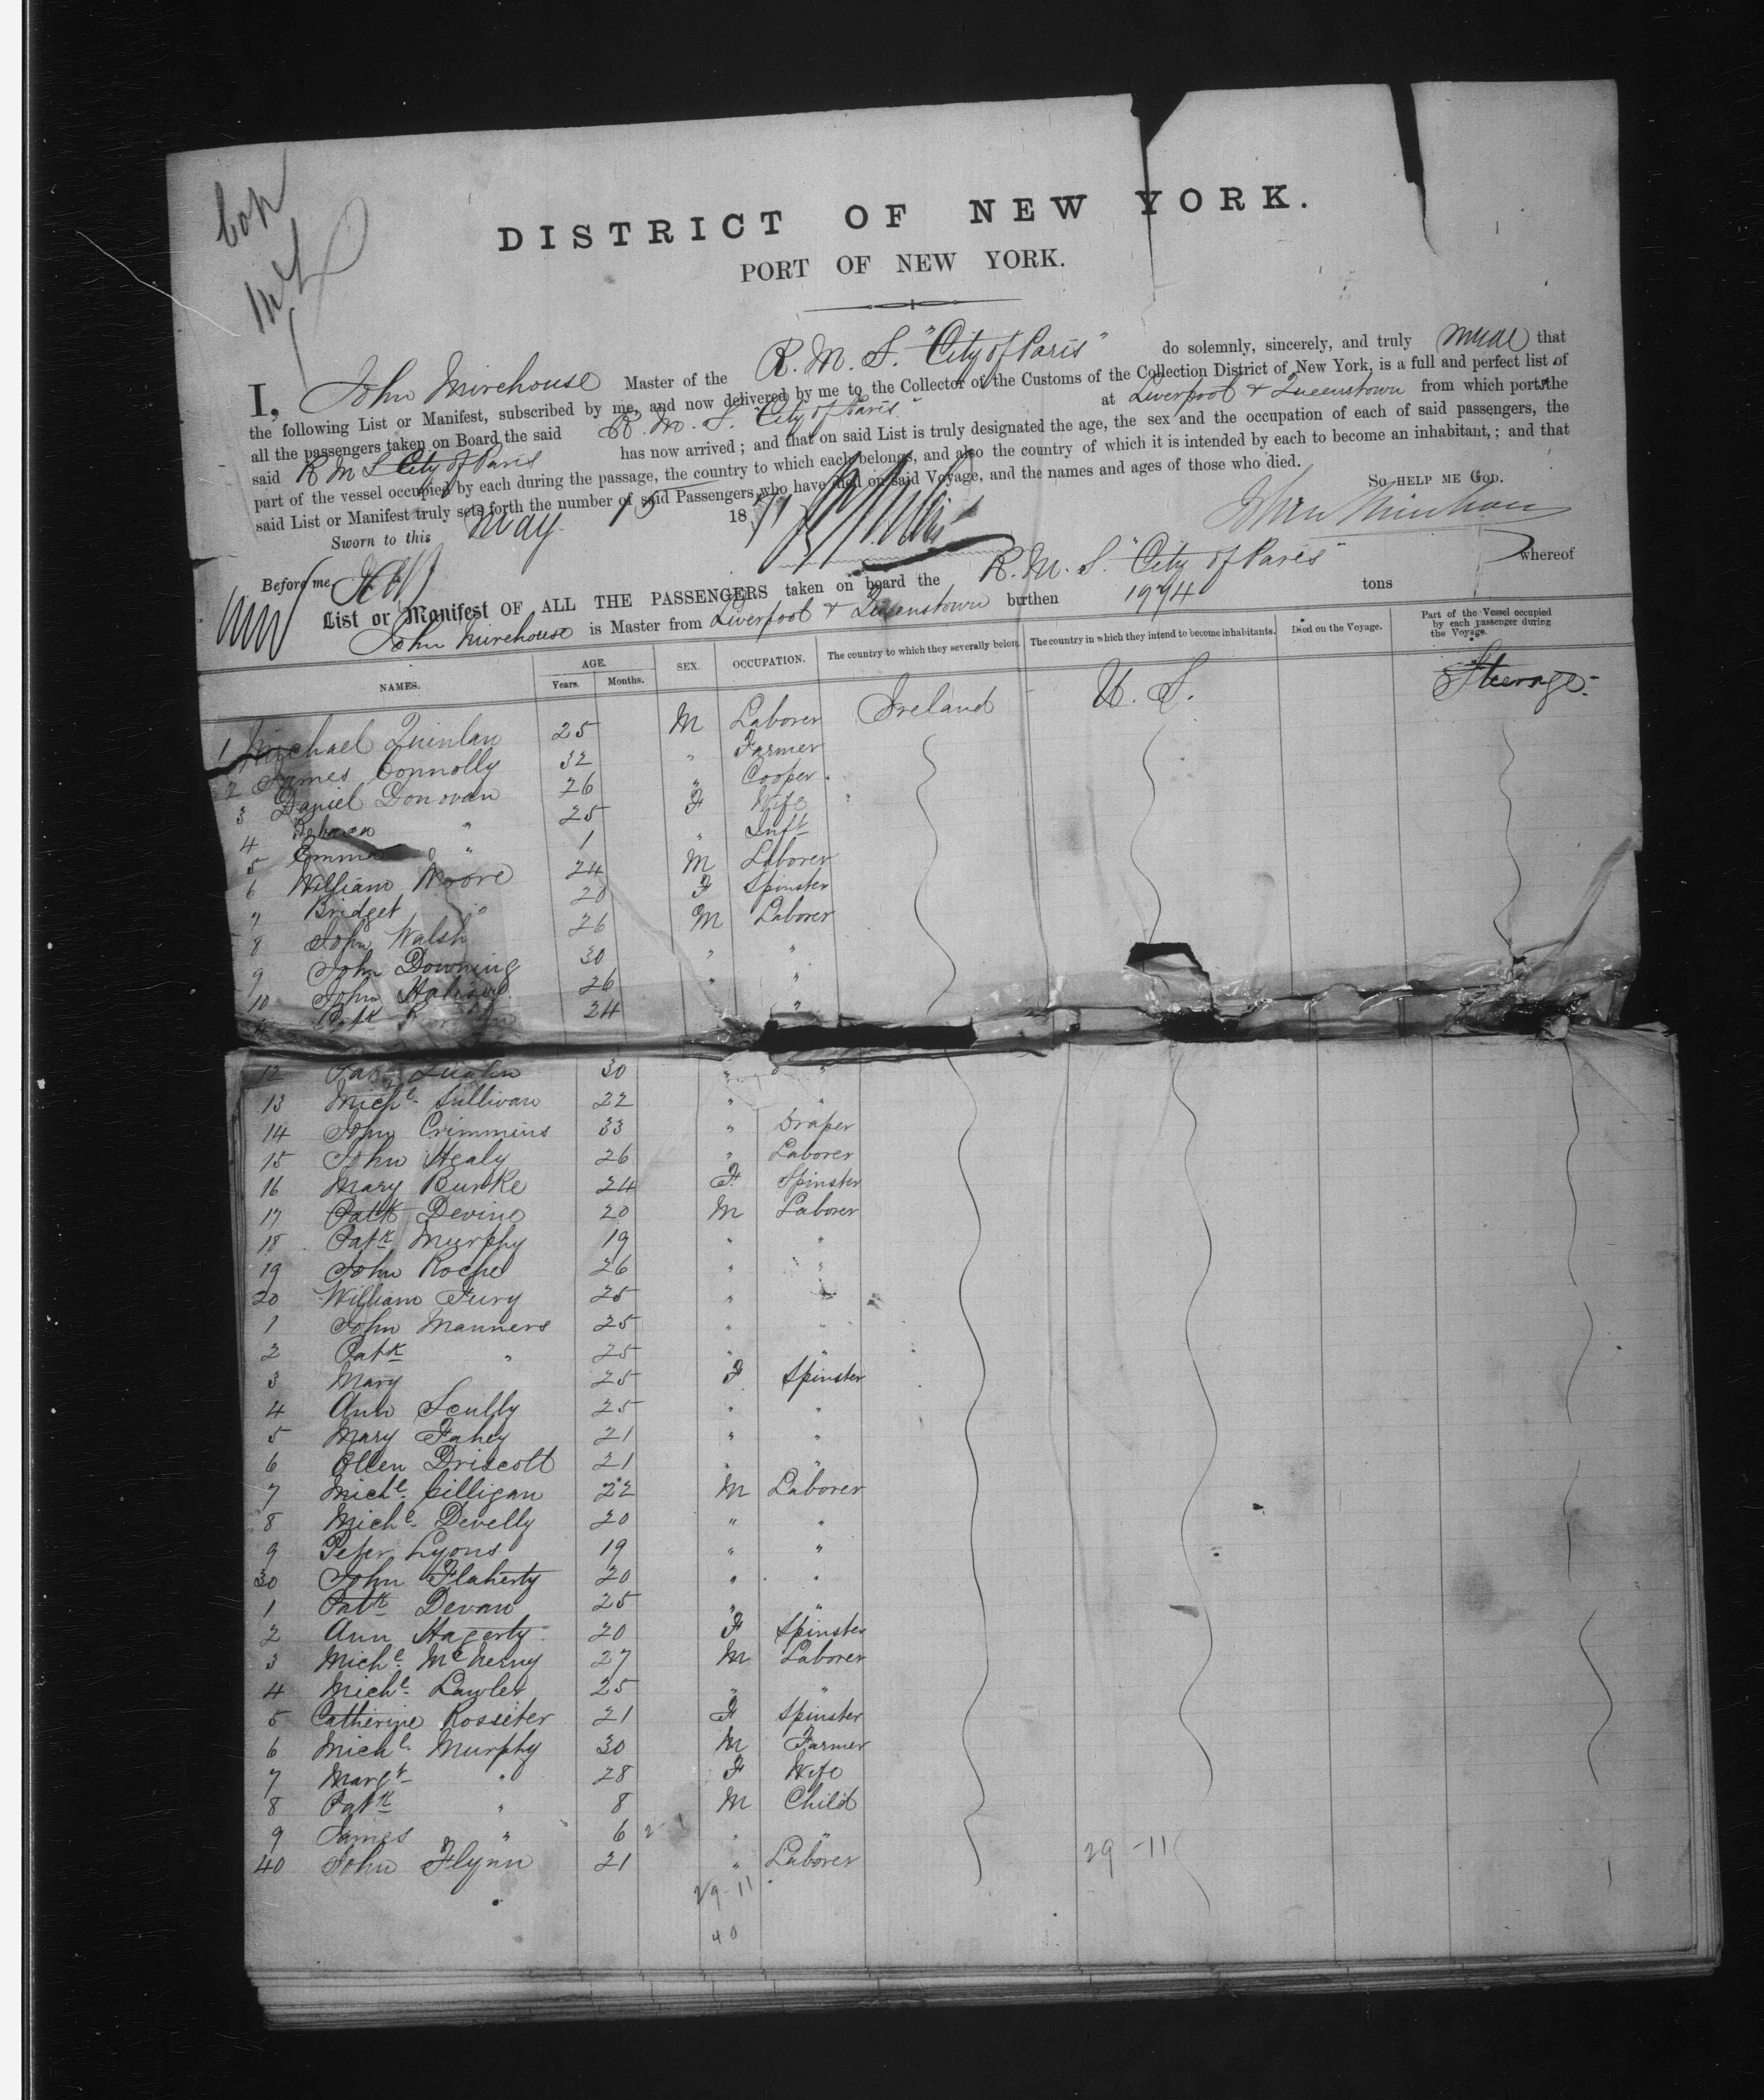 DISTRICT OF NEW YORK.
PORT OF NEW YORK.
I, John Mirehouse Master of the R. M. S. "City of Paris" do solemnly, sincerely, and truly that
the following List or Manifest, subscribed by me, and now delivered by me to the Collector of the Customs of the Collection District of New York, is a full and perfect list of
all the passengers taken on Board the said R. M. S. "City of Paris" at Liverpool & Queenstown from which ports the
said R M S City of Paris has now arrived; and that on said List is truly designated the age, the sex and the occupation of each of said passengers, the
part of the vessel occupied by each during the passage, the country to which each belongs, and also the country of which it is intended by each to become an inhabitant,; and that
said List or Manifest truly sets forth the number of said Passengers who have died on said Voyage, and the names and ages of those who died.
So HELP ME GOD.
Sworn to this May 18
Before me
List or Manifest OF ALL THE PASSENGERS taken on board the R. M. S. "City of Paris" whereof
John Mirehouse is Master from Liverpool & Queenstown burthen 1974 tons
NAMES. AGE. Years. Months. SEX. OCCUPATION. The country to which they severally belong. The country in which they intend to become inhabitants. Died on the Voyage. Part of the Vessel occupied by each passenger during the Voyage.
1 Michael Quinlan 25 M Laborer Ireland U. S. Steerage
2 James Connolly 32 " Farmer
3 Daniel Donovan 26 " Cooper
4 " 25 F Wife
5 Emma " 1 " Inft
6 William Moore 24 M Laborer
7 Bridget " 20 F Spinster
8 John Walsh 26 M Laborer
9 John Downing 30 " "
10 John 26 " "
Patk 24 "
12 30 " "
13 Michl Sullivan 22 " "
14 John Crimmins 33 " Draper
15 John Healy 26 " Laborer
16 Mary Burke 24 F Spinster
17 Patk Devine 20 M Laborer
18 Patk Murphy 19 " "
19 John Roche 26 " "
20 William Fury 25 " "
1 John Manners 25 " "
2 Patk " 25 " "
3 Mary 25 F Spinster
4 Ann Scully 25 " "
5 Mary Fahey 21 " "
6 Ellen Driscoll 21 " "
7 Michl Gilligan 22 M Laborer
8 Michl Develly 20 " "
9 Peter Lyons 19 " "
30 John Flaherty 20 " "
1 Patk Devan 25 " "
2 Ann Hagerty 20 F Spinster
3 Michl McNerny 27 M Laborer
4 Michl Lawler 25 " "
5 Catherine Rossiter 21 F Spinster
6 Michl Murphy 30 M Farmer
7 Margt " 28 F Wife
8 Patk " 8 M Child
9 James " 6 " "
40 John Flynn 21 " Laborer
29-11
29-11
40